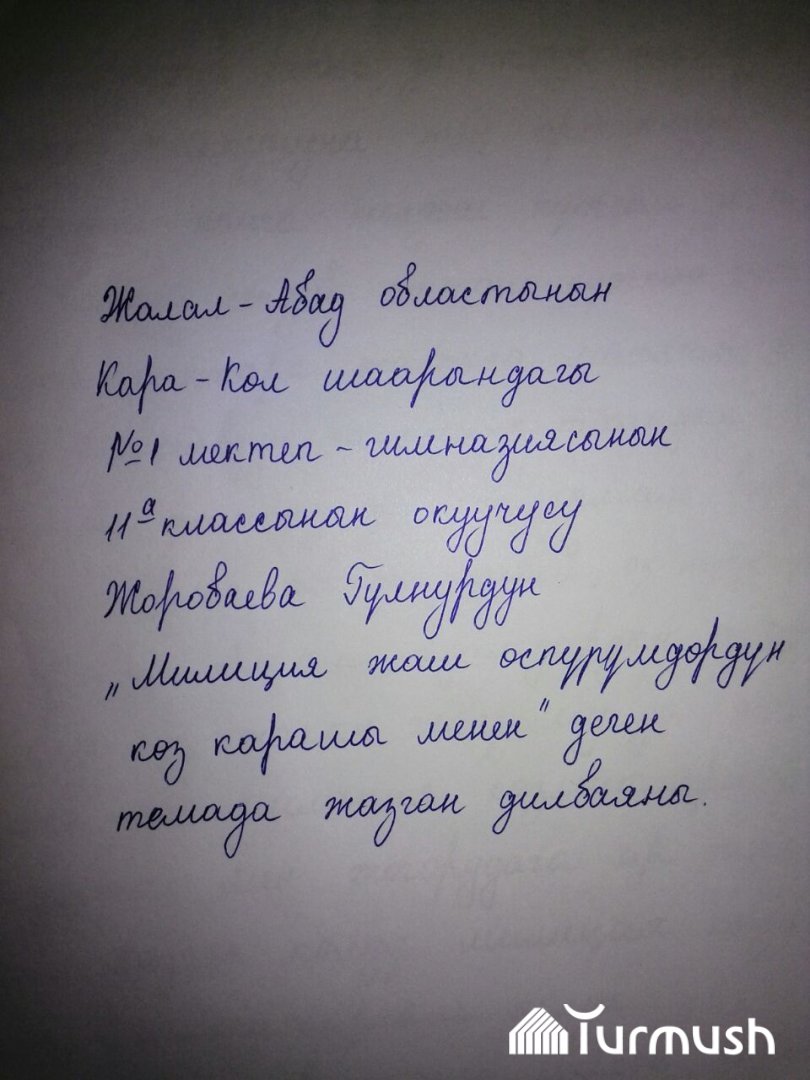 Жалал-Абад областынын
Кара-Кол шаарындагы
№1 мектеп-гимназиясынын
11ᵃ классынын окуучусу
Жоробаева Гулнурдун
„Милиция жаш оспурумдордун
коз карашы менен" деген
темада жазган дилбаяны.
Turmush